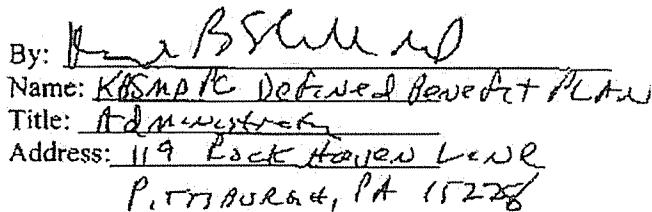 By:
Name: KBSMDPC Defined Benefit PLAN
Title: Administrator
Address: 119 Rock Haven Lane
PITTSBURGH, PA 15228